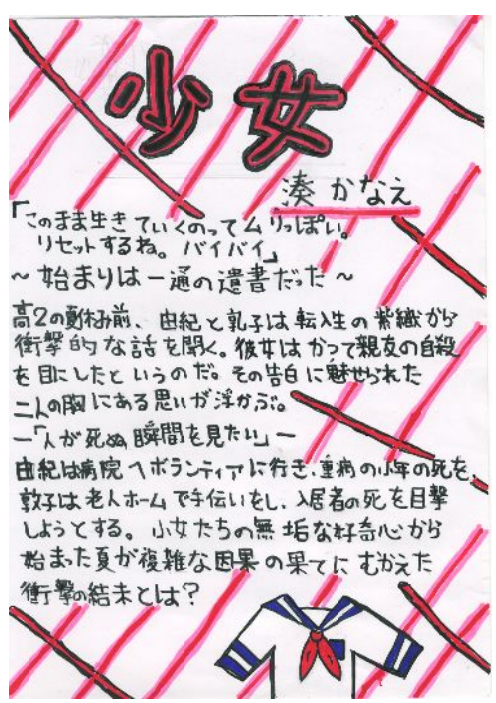 少女
湊かなえ
「このまま生きていくのってムリっぽい。
リセットするね。バイバイ」
~始まりは一通の遺書だった~
高2の夏休み前、由紀と敦子は転入生の紫織から
衝撃的な話を聞く。彼女はかつて親友の自殺
を目にしたというのだ。その告白に魅せられた
二人の胸にある思いが浮かぶ。
―「人が死ぬ瞬間を見たい」―
由紀は病院へボランティアに行き、重病の少年の死を、
敦子は老人ホームで手伝いをし、入居者の死を目撃
しようとする。少女たちの無垢な好奇心から
始まった夏が複雑な因果の果てにむかえた
衝撃の結末とは?